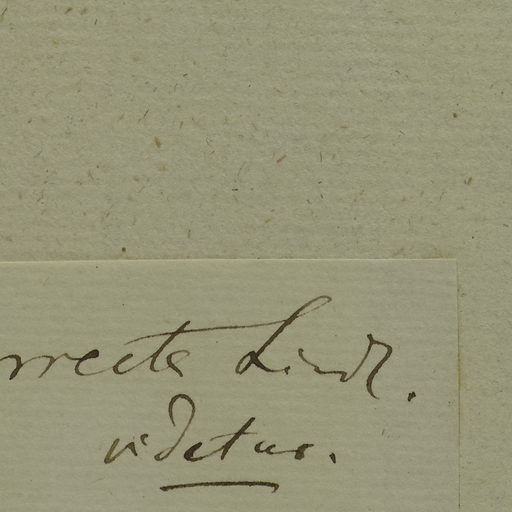 rrecta Lindl.
videtur.